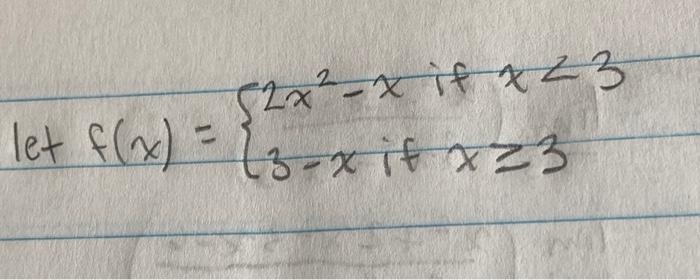 let f(x) = { 2x² - x if x < 3
3 - x if x ≥ 3